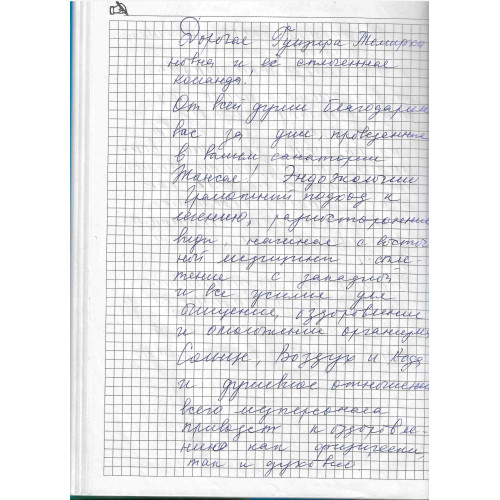 Дорогая Гулизра Темирха
новна и её сплоченная
команда!
От всей души благодарим
вас за дни, проведенные
в вашем санатории
Жансая! Эндоэкологию
Грамотный подход к
лечению, разносторонние
виды, начиная с восточ
ной медицины, соче
тение с западной
и все усилия для
очищения, оздоровления
и омоложения организма
Солнце, Воздух и Вода
и душевное отношение
всего медперсонала
приводят к оздоровле-
нию как физически,
так и духовно